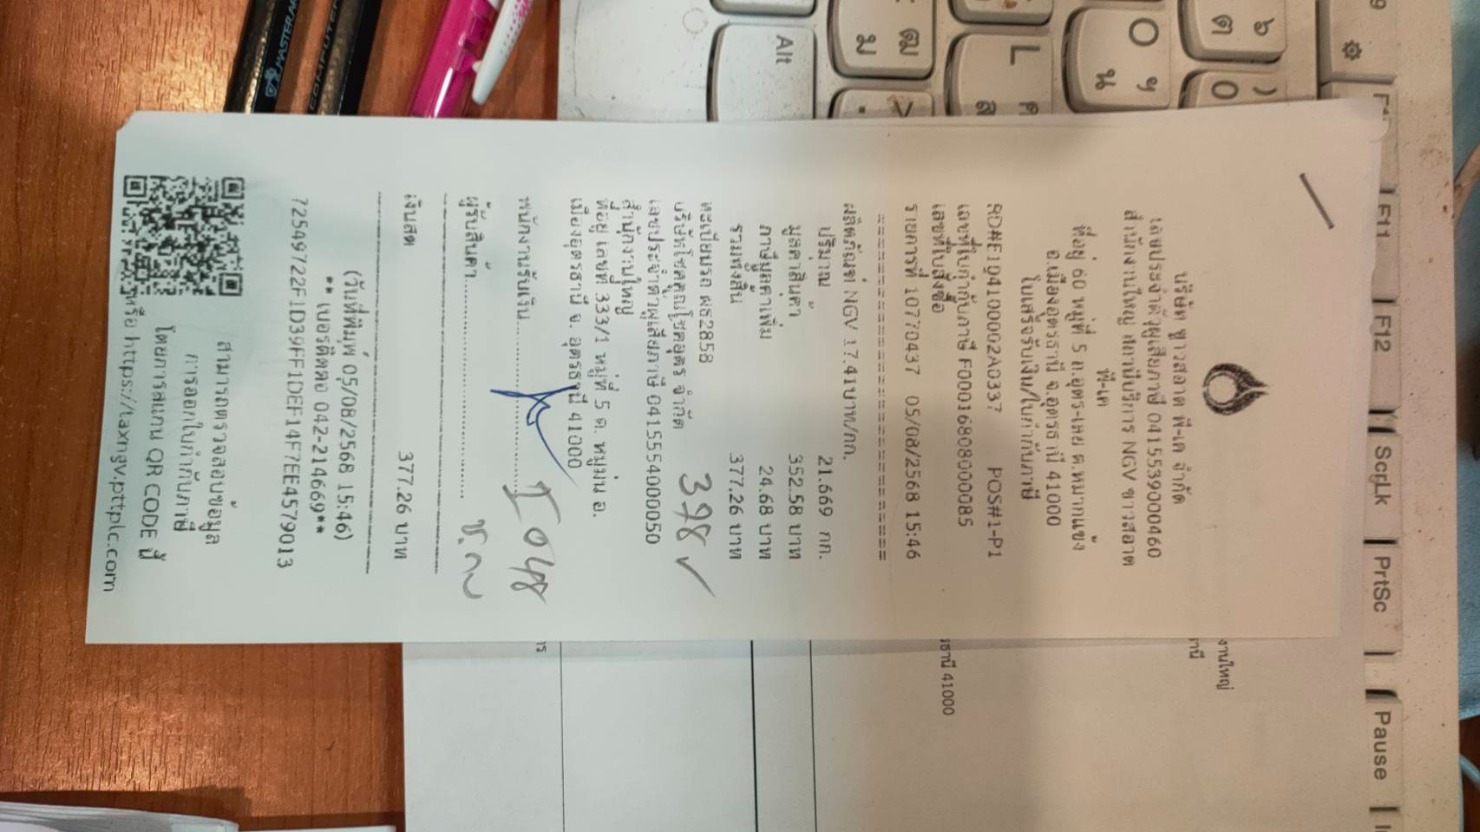 บริษัท ขาวสอาด พี-เค จำกัด
เลขประจำตัวผู้เสียภาษี 0415539000460
สำนักงานใหญ่ สถานีบริการ NGV ขาวสอาด
พี-เค
ที่อยู่ 60 หมู่ที่ 5 ถ.อุดร-เลย ต.หมากแข้ง
อ.เมืองอุดรธานี จ.อุดรธานี 41000
ใบเสร็จรับเงิน/ใบกำกับภาษี
RD#E104100002A0337 POS#1-P1
เลขที่ใบกำกับภาษี F0001680800085
เลขที่ใบสั่งซื้อ
รายการที่ 10770437 05/08/2568 15:46
==============================
ผลิตภัณฑ์ NGV 17.41บาท/กก.
ปริมาณ 21.669 กก.
มูลค่าสินค้า 352.58 บาท
ภาษีมูลค่าเพิ่ม 24.68 บาท
รวมทั้งสิ้น 377.26 บาท
ทะเบียนรถ ผธ2858
บริษัทโชคคูณโชคอุดร จำกัด
398 ✓
เลขประจำตัวผู้เสียภาษี 0415554000050
สำนักงานใหญ่
ที่อยู่ เลขที่ 333/1 หมู่ที่ 5 ต. หมูม่น อ.
เมืองอุดรธานี จ. อุดรธานี 41000
พนักงานรับเงิน
ผู้รับสินค้า
เงินสด 377.26 บาท
(วันที่พิมพ์ 05/08/2568 15:46)
** เบอร์ติดต่อ 042-214669**
72549722F1D39FF1DEF14F7EE4579013
สามารถตรวจสอบข้อมูล
การออกใบกำกับภาษี
โดยการสแกน QR CODE นี้
หรือ https://taxngv.pttplc.com
งานใหญ่
านี
รธานี 41000
าร
MASTERART
COMPUTER
Alt
F11
F12
ScrLk
PrtSc
Pause